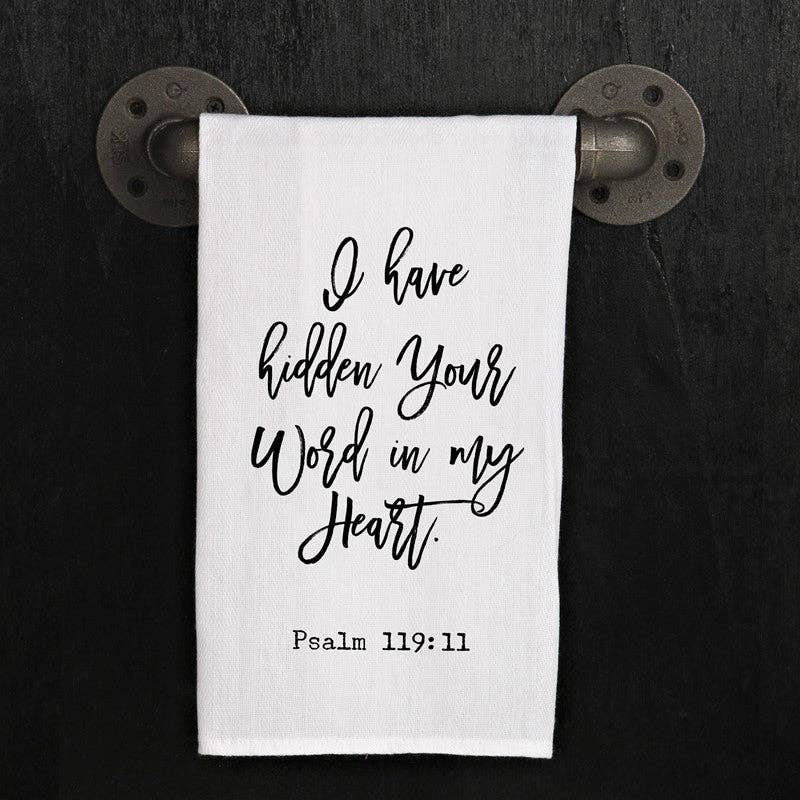 I have
hidden Your
Word in my
Heart.
Psalm 119:11